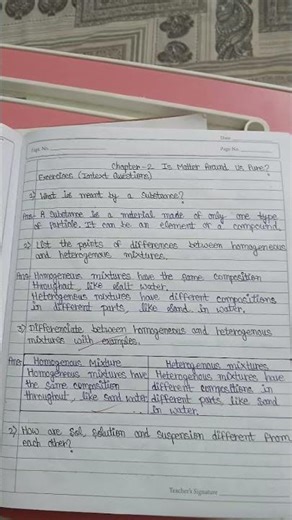 Date
Page No.
Page No.
Chapter-2 Is Matter Around Us Pure?
Exercises (Intext Questions)
1) What is meant by a Substance?
Ans- A Substance is a material made of only one type
of particle. It can be an element or a compound.
2) List the points of differences between homogeneous
and heterogenous mixtures.
Ans- Homogeneous mixtures have the same composition
throughout, like salt water.
Heterogenous mixtures have different compositions
in different parts, like sand in water.
3) Differentiate between homogeneous and heterogenous
mixtures with examples.
Ans- Homogenous Mixture Heterogenous mixtures
Homogeneous mixtures have Heterogenous mixtures have
the same composition different compositions in
throughout, like sand water different parts, like sand
in water.
2) How are Sol, Solution and suspension different from
each other?
Teacher's Signature